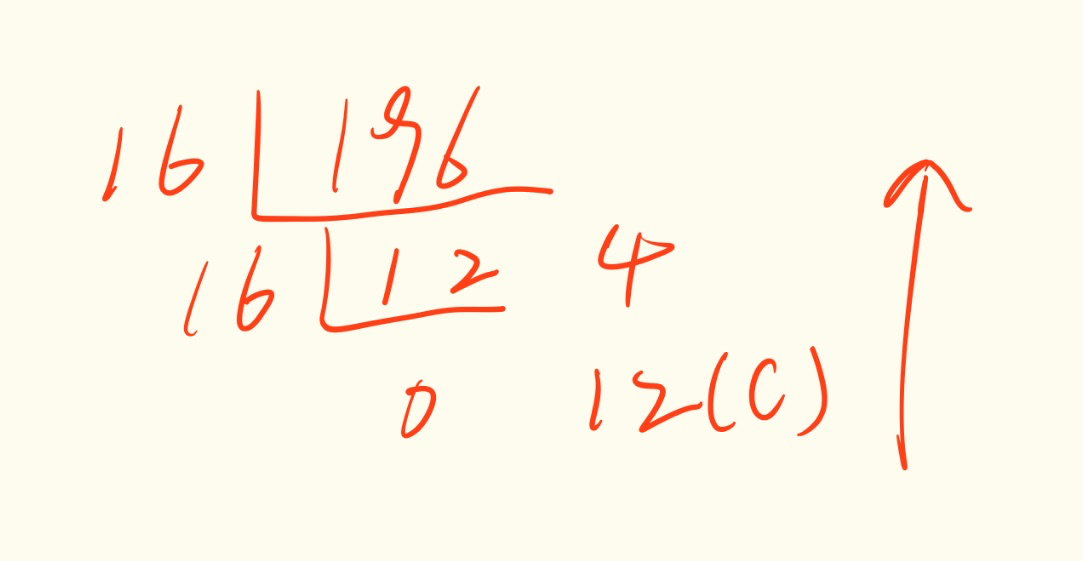 16 196
16 12 4
0 12(C)